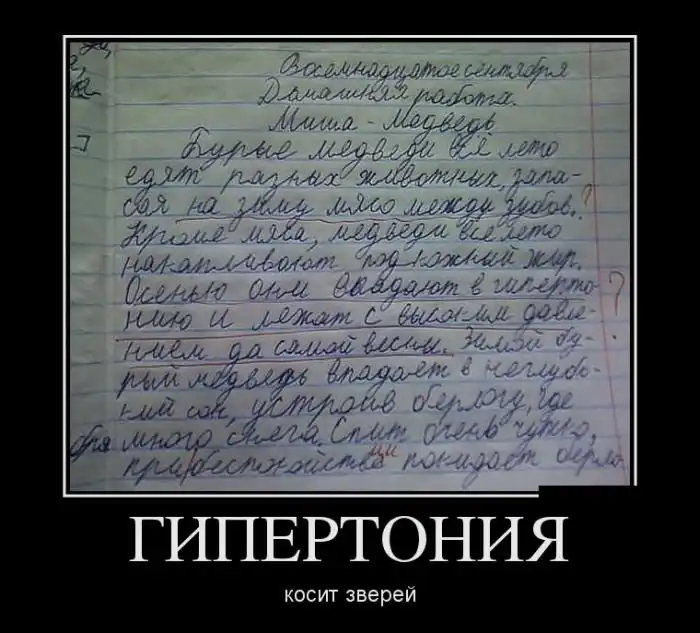 Восемнадцатое сентября
Домашняя работа.
Миша - Медведь
Бурые медведи всё лето
едят разных животных, запа-
сая на зиму мясо между зубов. ?
Кроме мяса, медведи всё лето
накапливают подкожный жир.
Осенью они впадают в гиперто- ?
нию и лежат с высоким давле-
нием да самой весны. Зимой бу-
рый медведь впадает в неглубо-
кий сон, устроив берлогу, где
много снега. Спит очень чутко,
при беспокойстве покидает берло
ГИПЕРТОНИЯ
косит зверей